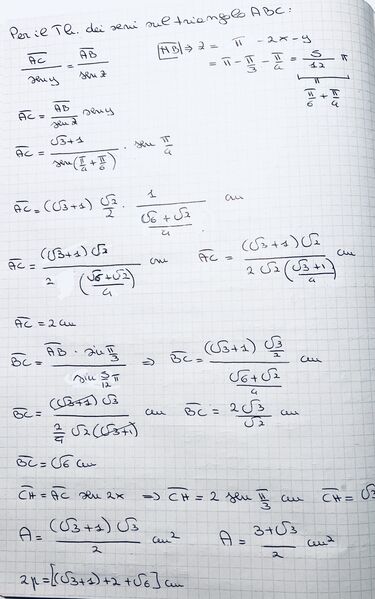 Per il Th. dei seni sul triangolo ABC:
AC/sen y = AB/sen z   NB ⇒ z = π - 2x - y
= π - π/3 - π/4 = 5/12 π
π/6 + π/4
AC = AB/sen z sen y
AC = (√3+1)/sen(π/4 + π/6) · sen π/4
AC = (√3+1) √2/2 · 1/((√6+√2)/4) cm
AC = (√3+1)√2 / 2((√6+√2)/4) cm   AC = (√3+1)√2 / 2√2((√3+1)/4) cm
AC = 2 cm
BC = AB · sin π/3 / sin 5/12 π ⇒ BC = (√3+1) √3/2 / (√6+√2)/4 cm
BC = (√3+1)√3 / 2/4 √2(√3+1) cm   BC = 2√3/√2 cm
BC = √6 cm
CH = AC sen 2x ⇒ CH = 2 sen π/3 cm   CH = √3
A = (√3+1)√3/2 cm²   A = 3+√3/2 cm²
2p = [(√3+1)+2+√6] cm